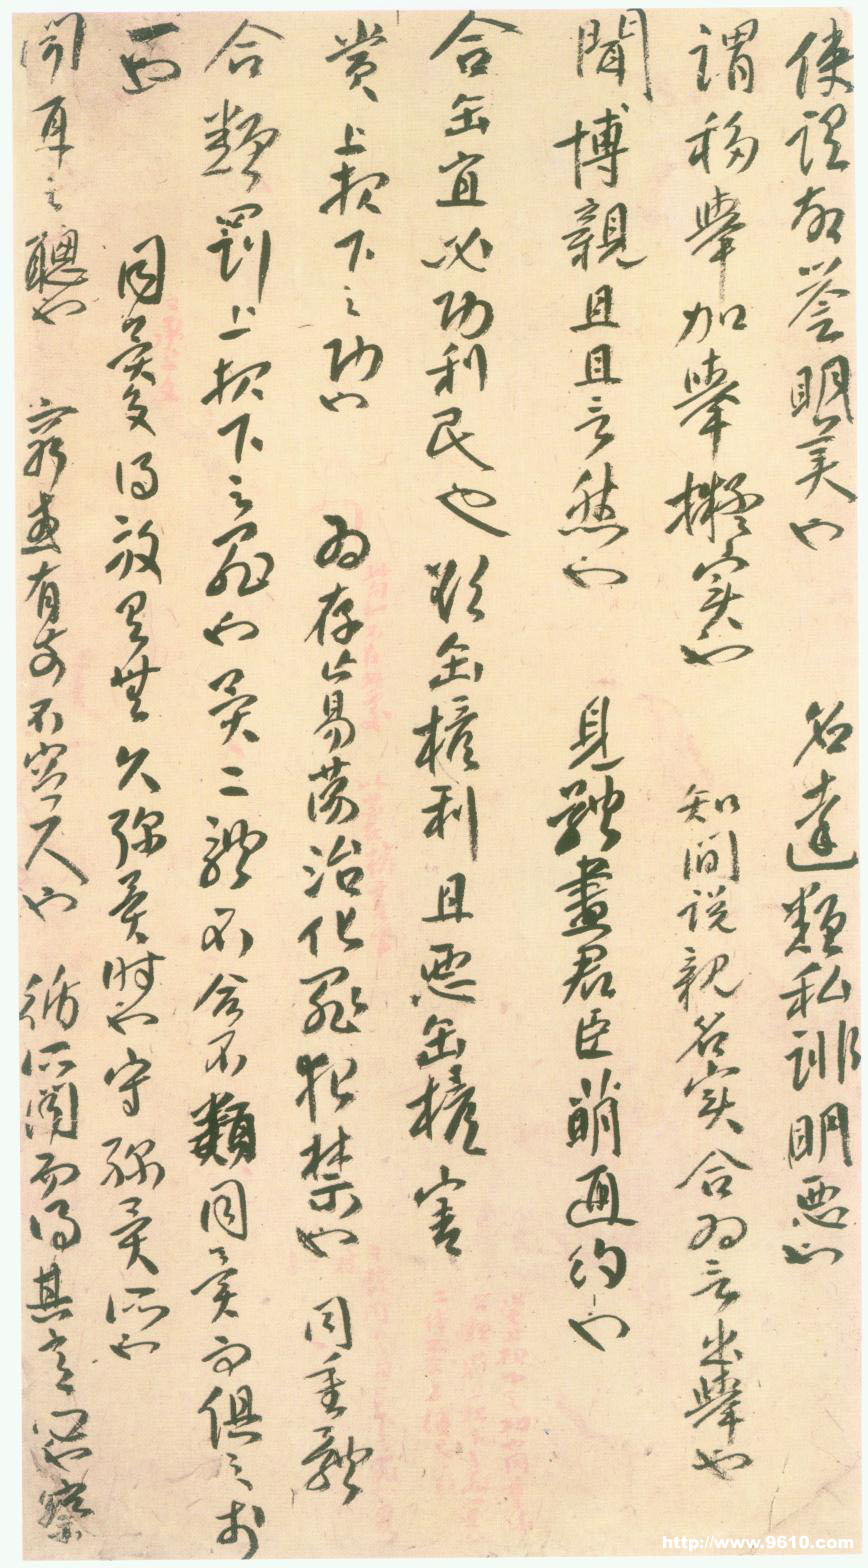 使謂故譽明美也　名達類私誹明惡也
謂移舉加舉擬實也　知聞說親名實合為言出舉也
聞博親且且言然也　見體盡君臣萌通約也
合正宜必功利民也　欲正權利且惡正權害
賞上報下之功也　為存亡易蕩治化罪犯禁也　同重體
合類罰上報下之罪也異二體不合不類同異而俱之於
一也　同異交得放有無久彌異時也守彌異所也
聞耳之聰也　窮或有前不容尺也　循所聞而得其意心也察
http://www.9610.com